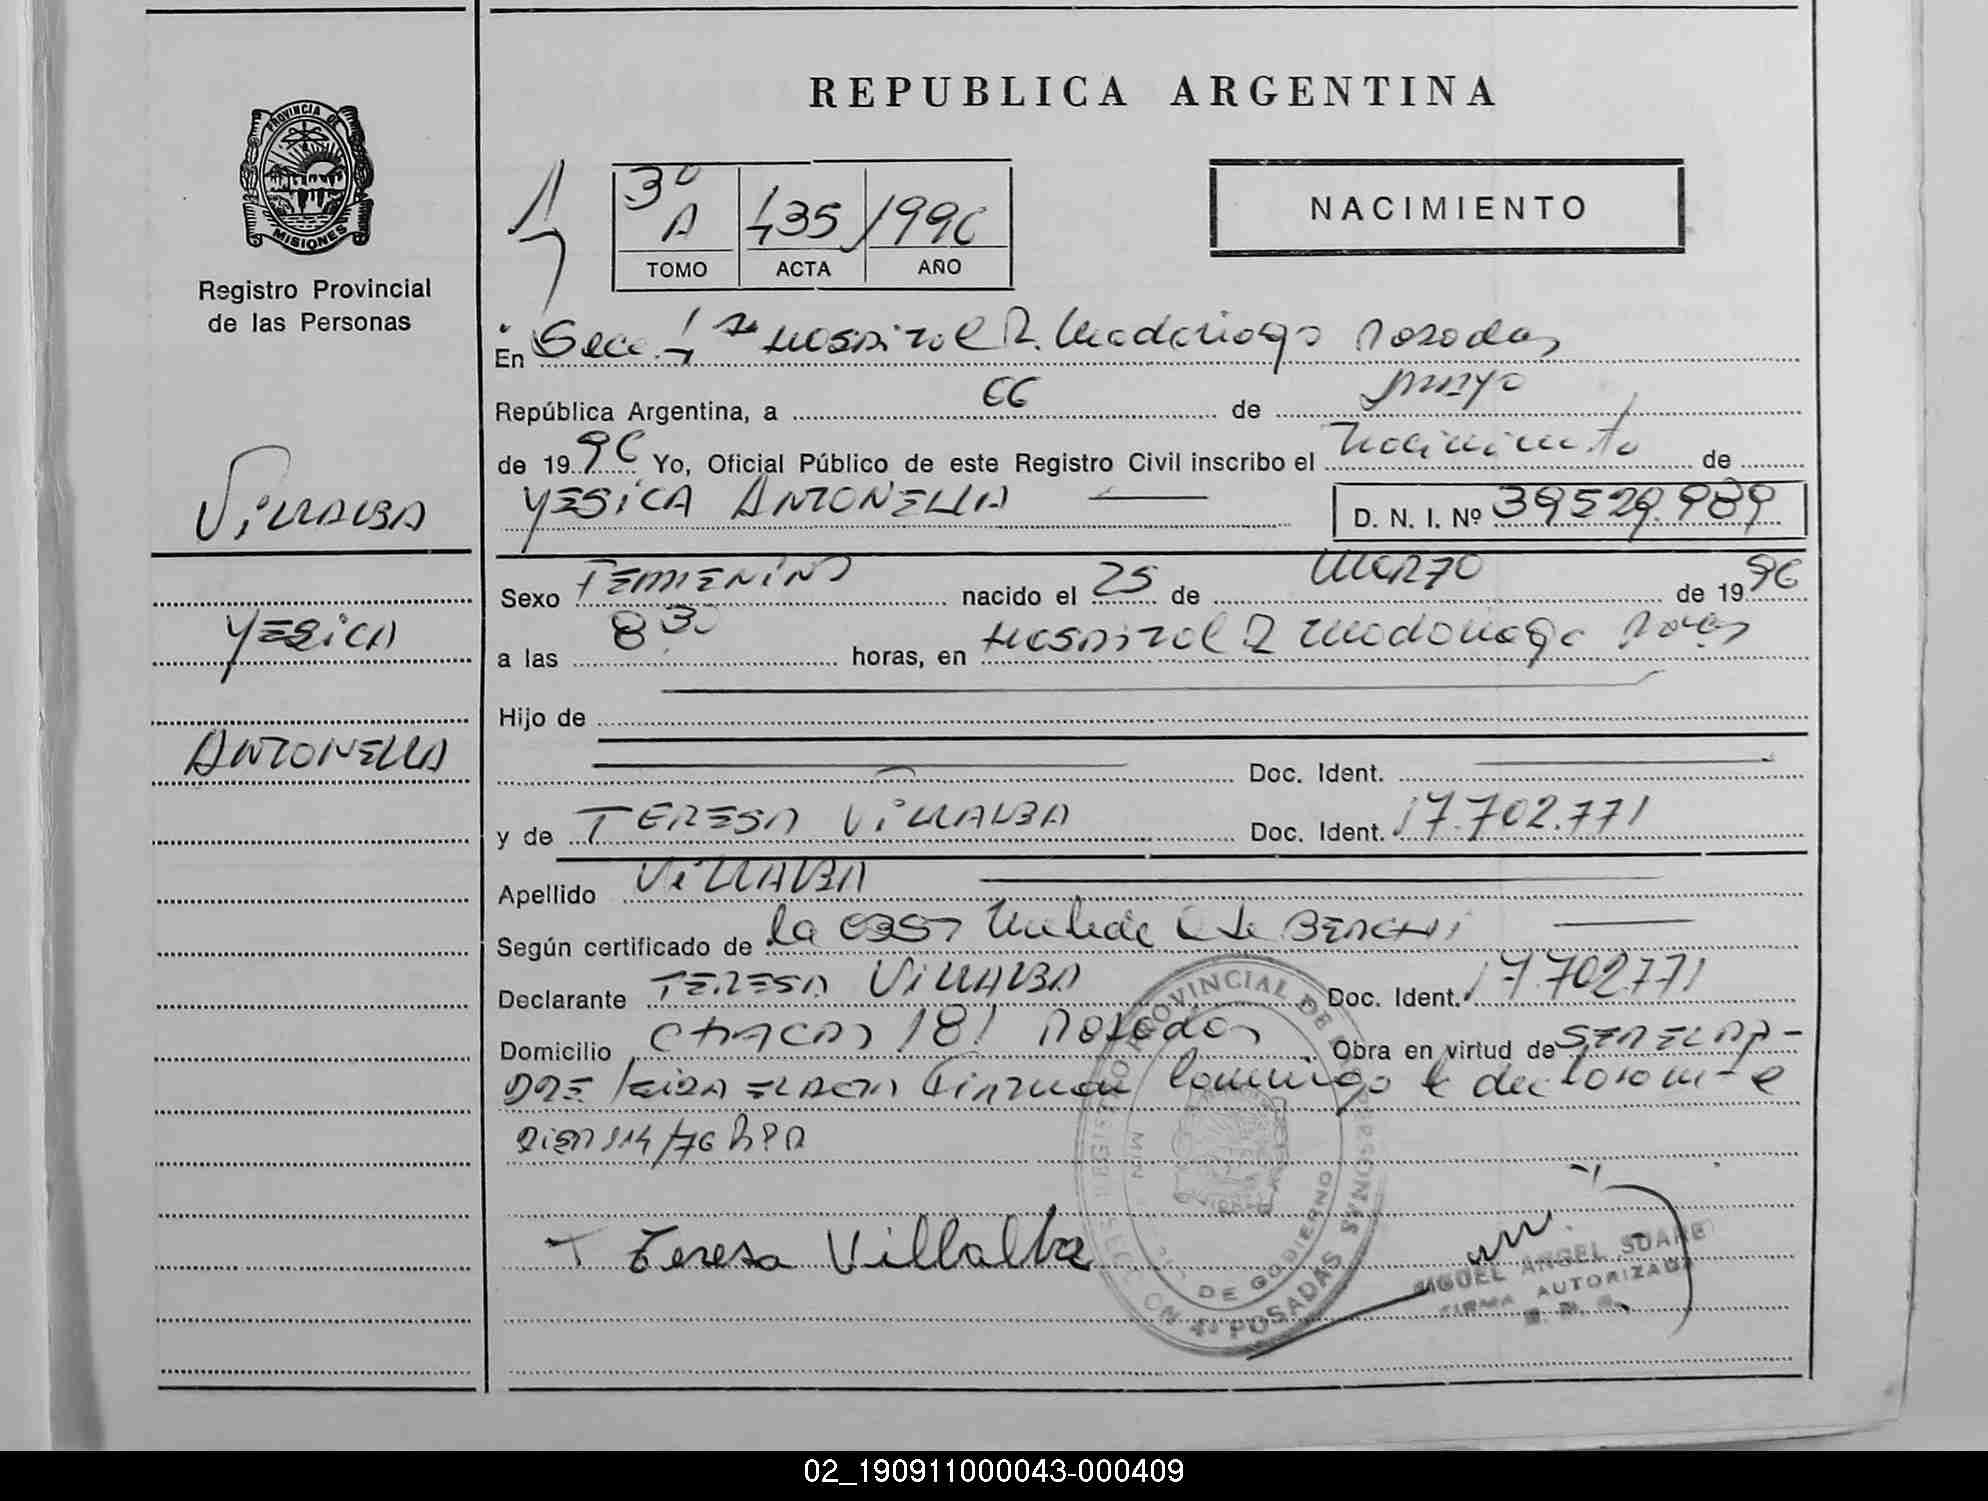 REPUBLICA ARGENTINA
PROVINCIA DE
MISIONES
Registro Provincial
de las Personas
3º A
TOMO ACTA AÑO
NACIMIENTO
En Secc. Hospital R. Madariaga Posadas
República Argentina, a 06 de mayo
de 1996 Yo, Oficial Público de este Registro Civil inscribo el Nacimiento de
YESICA ANTONELLA D. N. I. Nº 39529.989
VILLALBA
YESICA
ANTONELLA
Sexo FEMENINO nacido el 25 de Marzo de 1996
a las 8 30 horas, en Hospital R Madariaga
Hijo de
Doc. Ident.
y de TERESA VILLALBA Doc. Ident. 17.702.771
Apellido VILLALBA
Según certificado de la
Declarante TERESA VILLALBA Doc. Ident. 17.702771
Domicilio CHACAS 181 Posadas Obra en virtud de
conmigo la declarante
T Teresa Villalba
REGISTRO PROVINCIAL DE LAS PERSONAS
DE GOBIERNO
POSADAS
MIGUEL ANGEL SUARE
FIRMA AUTORIZADA
02_190911000043-000409